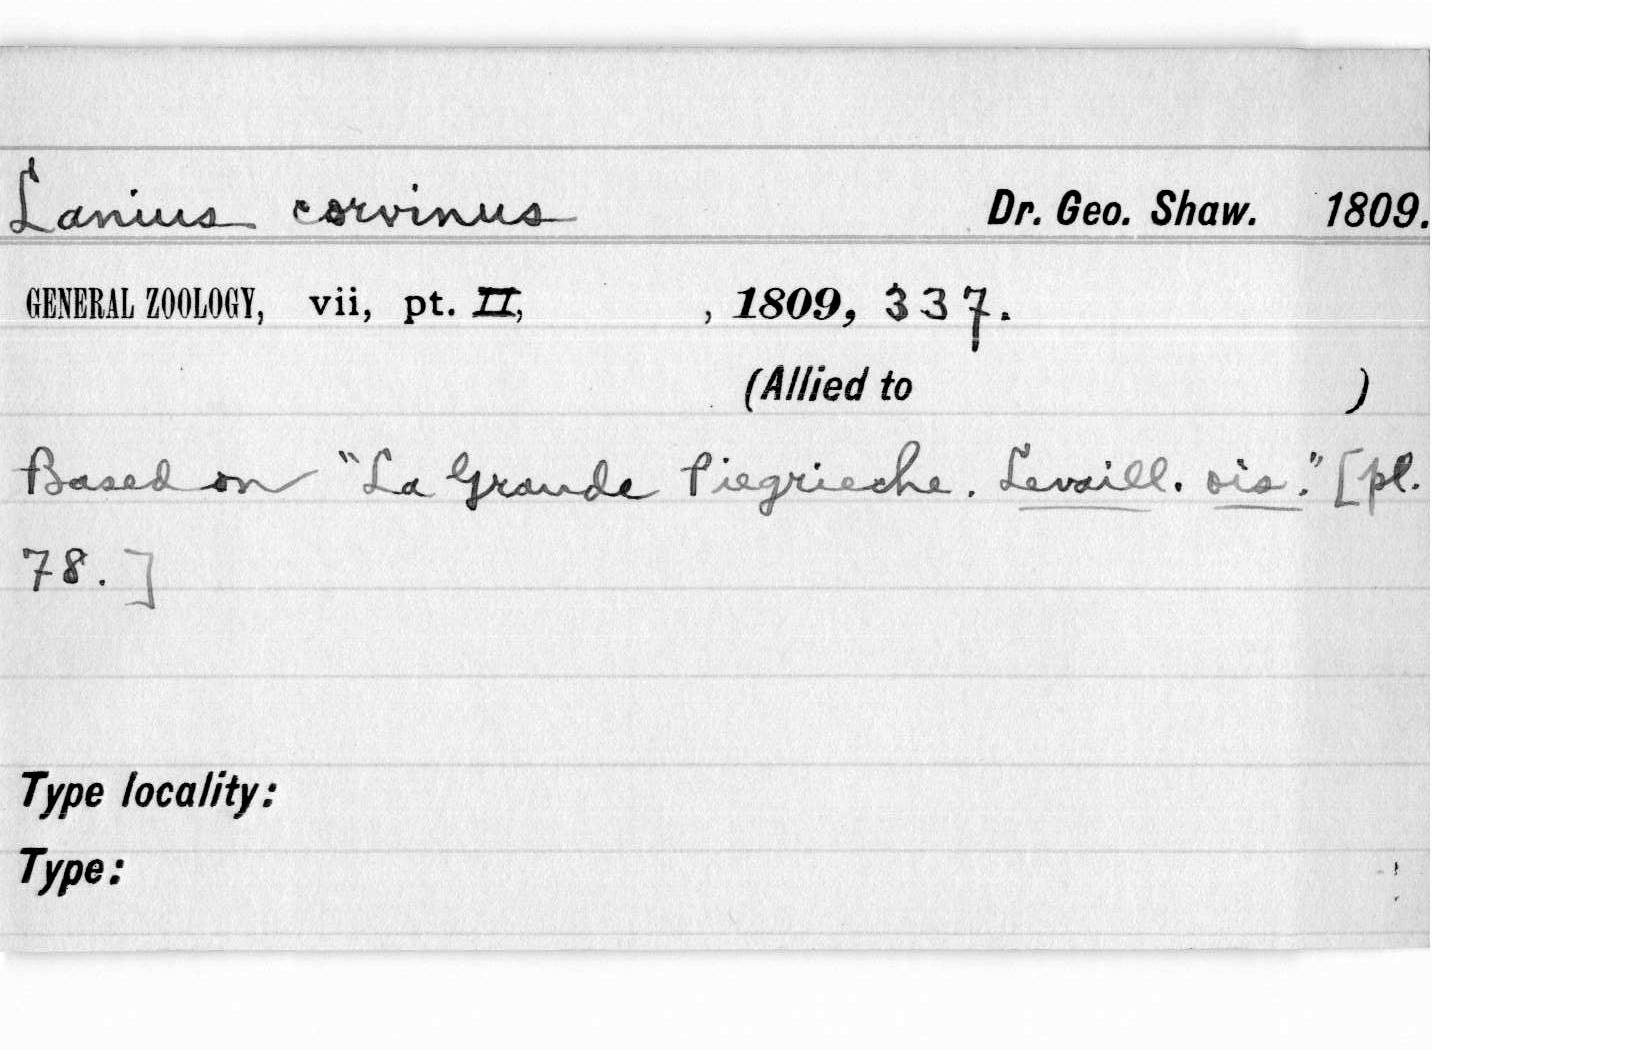 Lanius corvinus Dr. Geo. Shaw. 1809.
GENERAL ZOOLOGY, vii, pt. II, , 1809, 337.
(Allied to )
Based on "La Grande Piegrieche. Levaill. ois." [pl.
78.]
Type locality:
Type: